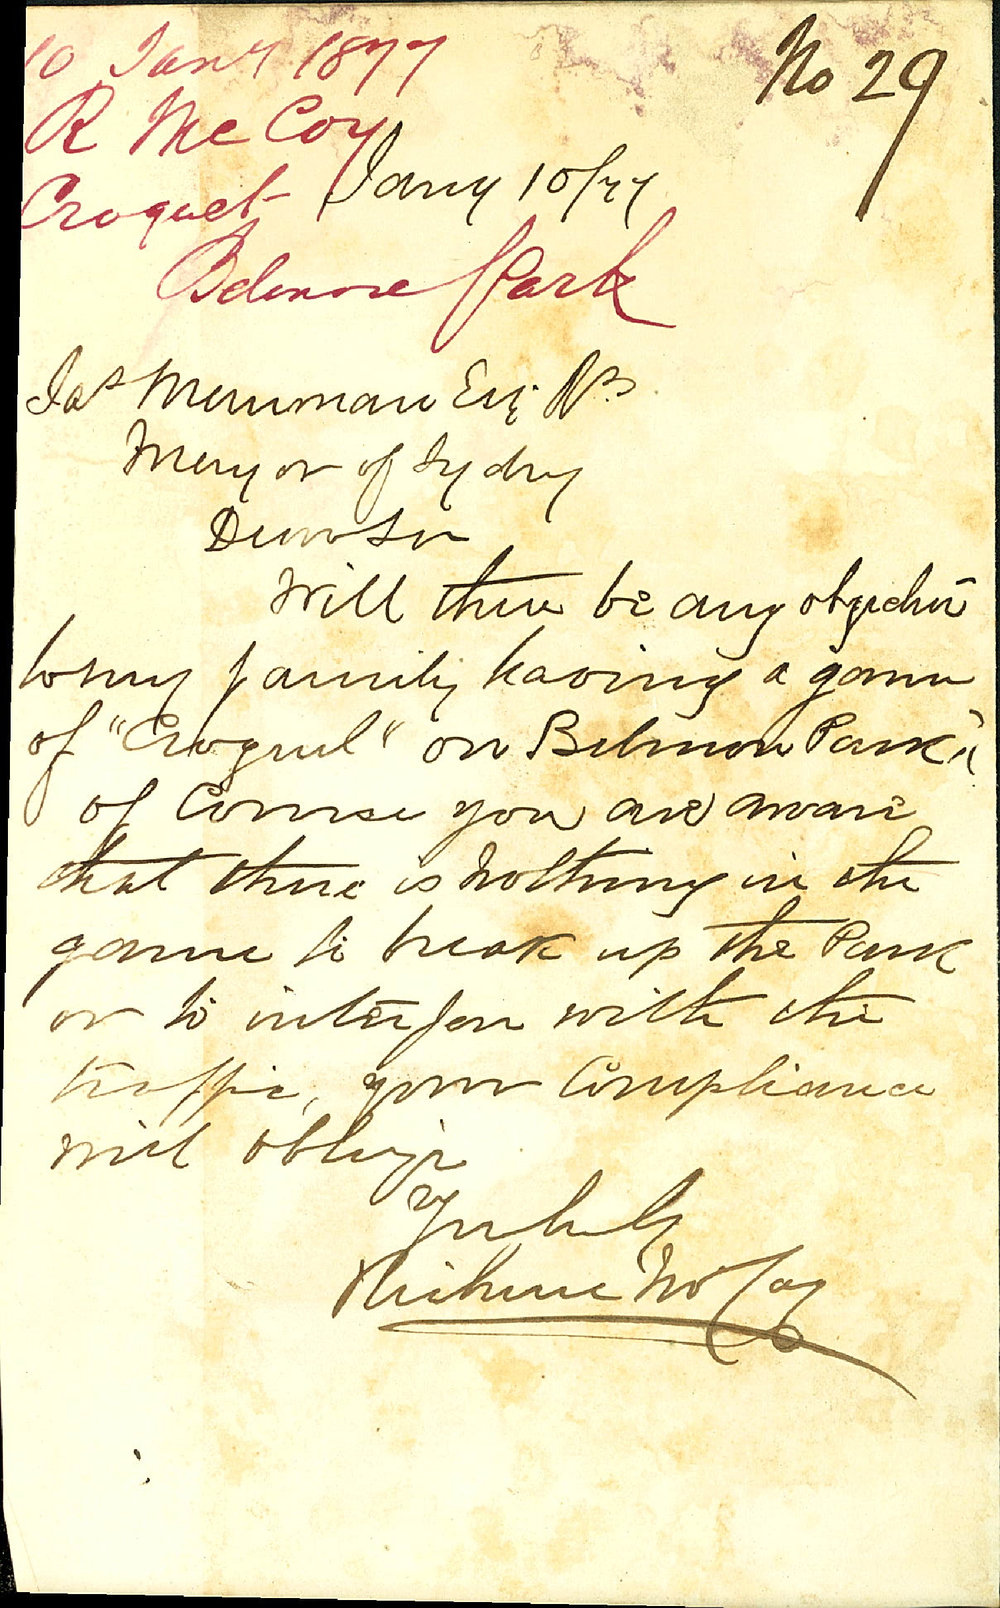 10 Jany 1877
No 29
R McCoy
Croquet
Jany 10/77
Belmore Park
Jas Merriman Esq
Mayor of Sydney
Dear Sir
Will there be any objection
to my family having a game
of "Croquet" on Belmore Park"
of Course you are aware
that there is nothing in the
game to break up the Park
or to interfere with the
traffic, your Compliance
will oblige
Richard McCoy